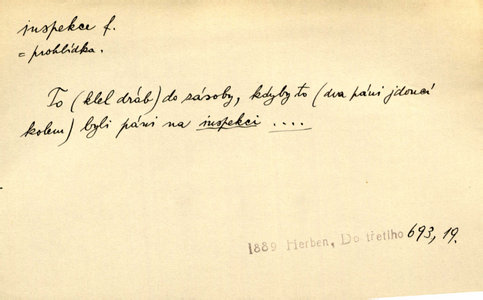 inspekce f.
= prohlídka.
To (klel dráb) do zásoby, kdyby to (dva páni jdoucí
kolem) byli páni na inspekci ....
1889 Herben, Do třetího 693, 19.